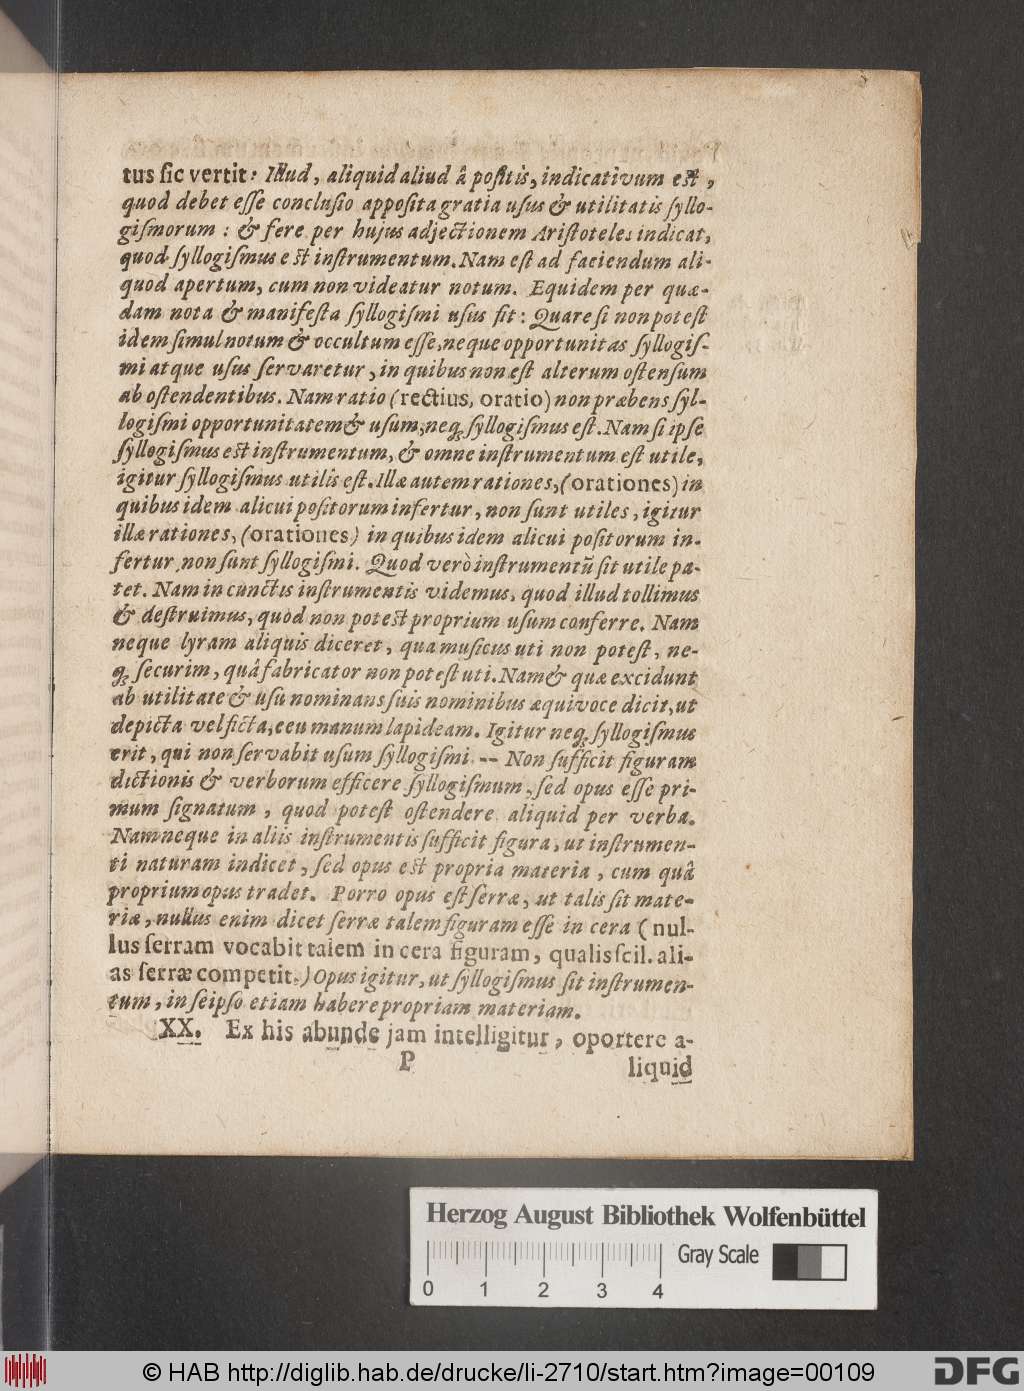 tus ſic vertit: Illud, aliquid aliud â poſitis, indicativum eſt,
quod debet eſſe concluſio appoſita gratia uſus & utilitatis ſyllo-
giſmorum: & fere per hujus adjectionem Ariſtoteles indicat,
quod ſyllogiſmus eſt inſtrumentum. Nam eſt ad faciendum ali-
quod apertum, cum non videatur notum. Equidem per quæ-
dam nota & manifeſta ſyllogiſmi uſus ſit: Quare ſi non poteſt
idem ſimul notum & occultum eſſe, neque opportunitas ſyllogiſ-
mi atque uſus ſervaretur, in quibus non eſt alterum oſtenſum
ab oſtendentibus. Nam ratio (rectius, oratio) non præbens ſyl-
logiſmi opportunitatem & uſum, neq; ſyllogiſmus eſt. Nam ſi ipſe
ſyllogiſmus eſt inſtrumentum, & omne inſtrumentum eſt utile,
igitur ſyllogiſmus utilis eſt. Illæ autem rationes, (orationes) in
quibus idem alicui poſitorum infertur, non ſunt utiles, igitur
illæ rationes, (orationes) in quibus idem alicui poſitorum in-
fertur, non ſunt ſyllogiſmi. Quod verò inſtrumentũ ſit utile pa-
tet. Nam in cunctis inſtrumentis videmus, quod illud tollimus
& deſtruimus, quod non poteſt proprium uſum conferre. Nam
neque lyram aliquis diceret, qua muſicus uti non poteſt, ne-
q; ſecurim, quâ fabricator non poteſt uti. Nam & quæ excidunt
ab utilitate & uſu nominans ſuis nominibus æquivoce dicit, ut
depicta vel ficta, ceu manum lapideam. Igitur neq; ſyllogiſmus
erit, qui non ſervabit uſum ſyllogiſmi. -- Non ſufficit figuram
dictionis & verborum efficere ſyllogiſmum, ſed opus eſſe pri-
mum ſignatum, quod poteſt oſtendere aliquid per verba.
Nam neque in aliis inſtrumentis ſufficit figura, ut inſtrumen-
ti naturam indicet, ſed opus eſt propria materia, cum quâ
proprium opus tradet. Porro opus eſt ſerræ, ut talis ſit mate-
riæ, nullus enim dicet ſerræ talem figuram eſſe in cera (nul-
lus ſerram vocabit talem in cera figuram, qualis ſcil. ali-
as ſerræ competit.) Opus igitur, ut ſyllogiſmus ſit inſtrumen-
tum, in ſeipſo etiam habere propriam materiam.
XX. Ex his abunde jam intelligitur, oportere a-
P
liquid
Herzog August Bibliothek Wolfenbüttel
Gray Scale
0 1 2 3 4
© HAB http://diglib.hab.de/drucke/li-2710/start.htm?image=00109
DFG